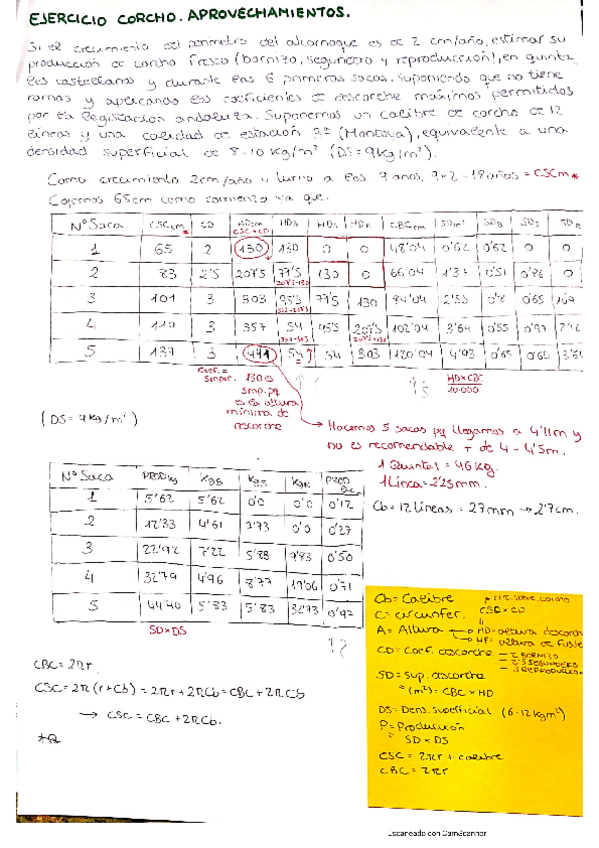 EJERCICIO CORCHO. APROVECHAMIENTOS.
Si el crecimiento del perímetro del alcornoque es de 2 cm/año, estimar su
producción de corcho fresco (bornizo, segundero y reproducción), en quinta
les castellanos y durante las 6 primeras sacas, suponiendo que no tiene
ramas y aplicando los coeficientes de descorche máximos permitidos
por la legislación andaluza. Suponemos un calibre de corcho de 12
líneas y una calidad de estación 3ª (Montoya), equivalente a una
densidad superficial de 8-10 kg/m² (DS = 9kg/m²).
Como crecimiento 2cm/año y turno a los 9 años, 9·2 = 18 años = CSCm*
Cogemos 65cm como comienzo ya que.
Nº Saca CSCcm CD HDcm CSC×CD HDB HDS HDR CBCcm SDm² SDB SDS SDR
1 65 2 130 130 0 0 48'04 0'62 0'62 0 0
2 83 2'5 207'5 77'5 130 0 66'04 1'37 0'51 0'86 0
207'5-130
3 101 3 303 95'5 77'5 130 84'04 2'55 0'8 0'65
4 119 3 357 54 95'5 207'5 102'04 3'64 0'55 0'97
5 137 3 411 54 54 303 120'04 4'93 0'65 0'65
Coef. = 130 es HD×CBC
siempre. smp. pq 10.000
es la altura
mínima de
descorche
(DS = 9 kg/m²)
→ Hacemos 5 sacas pq llegamos a 4'11m y
no es recomendable + de 4 - 4'5m.
1 Quintal = 46 kg.
1 Línea = 2'25mm.
Cb = 12 líneas = 27mm → 2'7cm.
Nº Saca PRODkg KgB KgS KgR PROD Qc.
1 5'62 5'62 0'0 0'0 0'12
2 12'33 4'61 7'73 0'0 0'27
3 22'92 7'22 5'88 9'83 0'50
4 32'79 4'96 8'77 19'06 0'71
5 44'40 5'83 5'83 32'73 0'97
SD×DS
CBC = 2πr.
CSC = 2π(r+Cb) = 2πr + 2πCb = CBC + 2πCb
→ CSC = CBC + 2πCb.
Cb = Calibre
C = circunfer. CSC × CD
A = Altura HD = altura descorche
HF = altura de fuste
CD = Coef. descorche — 2 BORNIZO
2'5 SEGUNDERO
3 REPRODUCCIÓN
SD = Sup. descorche
(m²) = CBC × HD
DS = Dens. superficial (6-12 kg m²)
P = Producción
SD × DS
CSC = 2πr + calibre
CBC = 2πr
Escaneado con CamScanner